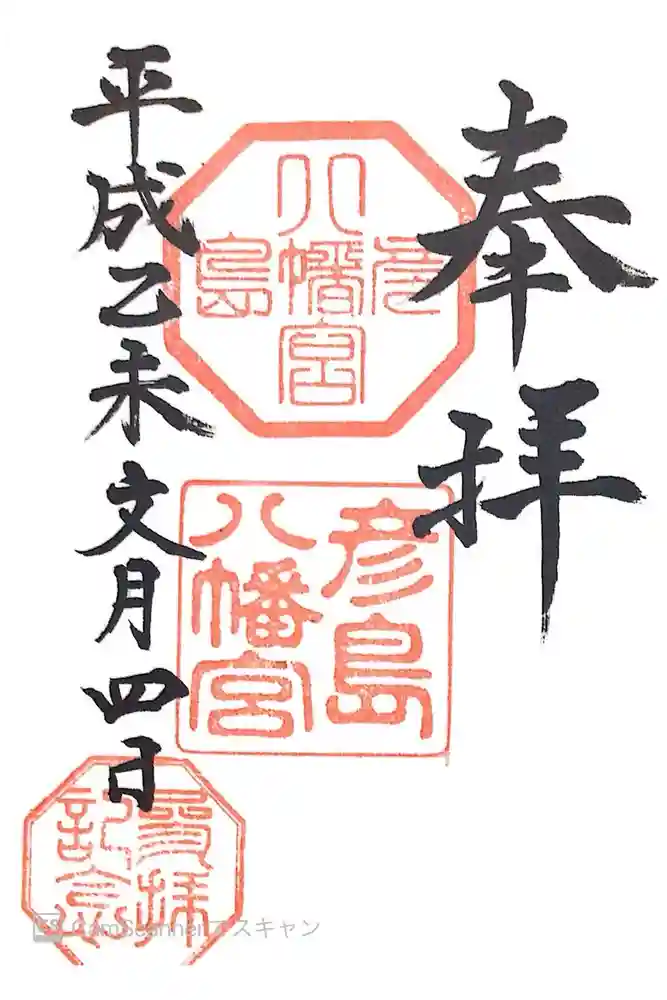 奉拝
八幡宮
彦島
彦島
八幡宮
平成乙未文月四日
参拝
記念
CS CamScannerでスキャン